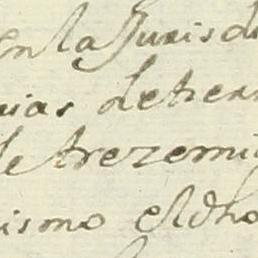 en la Juris di
nias de tierr
de trezemi
ismo el dho